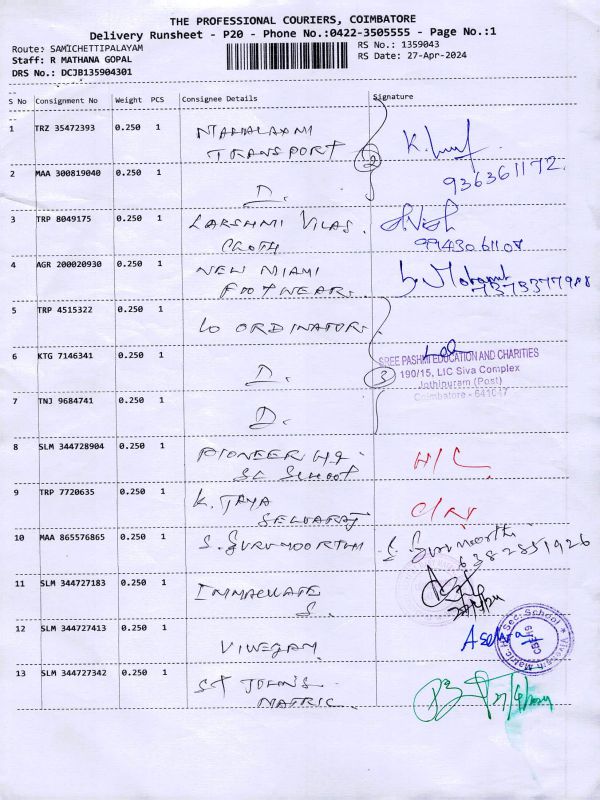 THE PROFESSIONAL COURIERS, COIMBATORE
Delivery Runsheet - P20 - Phone No.:0422-3505555 - Page No.:1
Route: SAMICHETTIPALAYAM
RS No.: 1359043
Staff: R MATHANA GOPAL
RS Date: 27-Apr-2024
DRS No.: DCJB135904301
S No Consignment No Weight PCS Consignee Details Signature
1 TRZ 35472393 0.250 1 MAHALAXMI
TRANSPORT 2
2 MAA 300819040 0.250 1 D.
936361172.
3 TRP 8049175 0.250 1 LAKSHMI VILAS.
CLOTH 9943061108
4 AGR 200020930 0.250 1 NEW MIAMI
FOOTWEAR. 7373377988
5 TRP 4515322 0.250 1 CO ORDINATOR.
6 KTG 7146341 0.250 1 D. 3
SREE PASHMI EDUCATION AND CHARITIES
190/15, LIC Siva Complex
Jothipuram (Post)
Coimbatore - 641047
7 TNJ 9684741 0.250 1 D.
8 SLM 344728904 0.250 1 PIONEER H9
SC SCHOOL H/C
9 TRP 7720635 0.250 1 K. JAYA
SELVARAJ
10 MAA 865576865 0.250 1 S. GURUMOORTHI S. Gurumoorthi
6382851926
11 SLM 344727183 0.250 1 IMMACULATE
S.
12 SLM 344727413 0.250 1 VIVEGAM
13 SLM 344727342 0.250 1 ST JOHNS
MATRIC. 27/4/2024